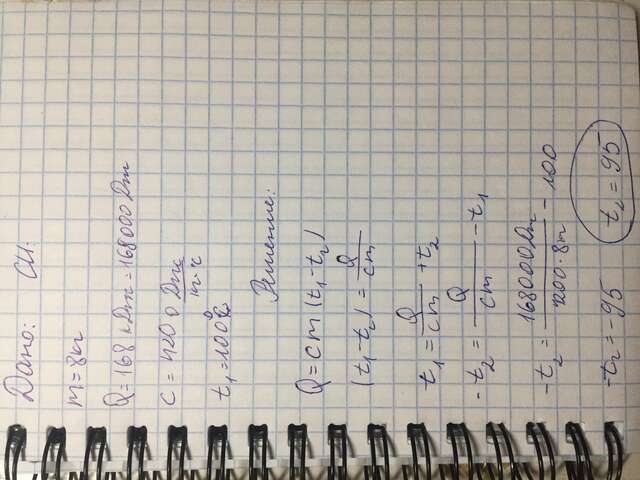 Дано: СИ:
m = 8кг
Q = 168 кДж = 168000 Дж
c = 4200 Дж/кг·°C
t₁ = 100°C
Решение:
Q = cm (t₁ - t₂)
(t₁ - t₂) = Q/cm
t₁ = Q/cm + t₂
-t₂ = Q/cm - t₁
-t₂ = 168000 Дж/4200·8кг - 100
-t₂ = -95 t₂ = 95